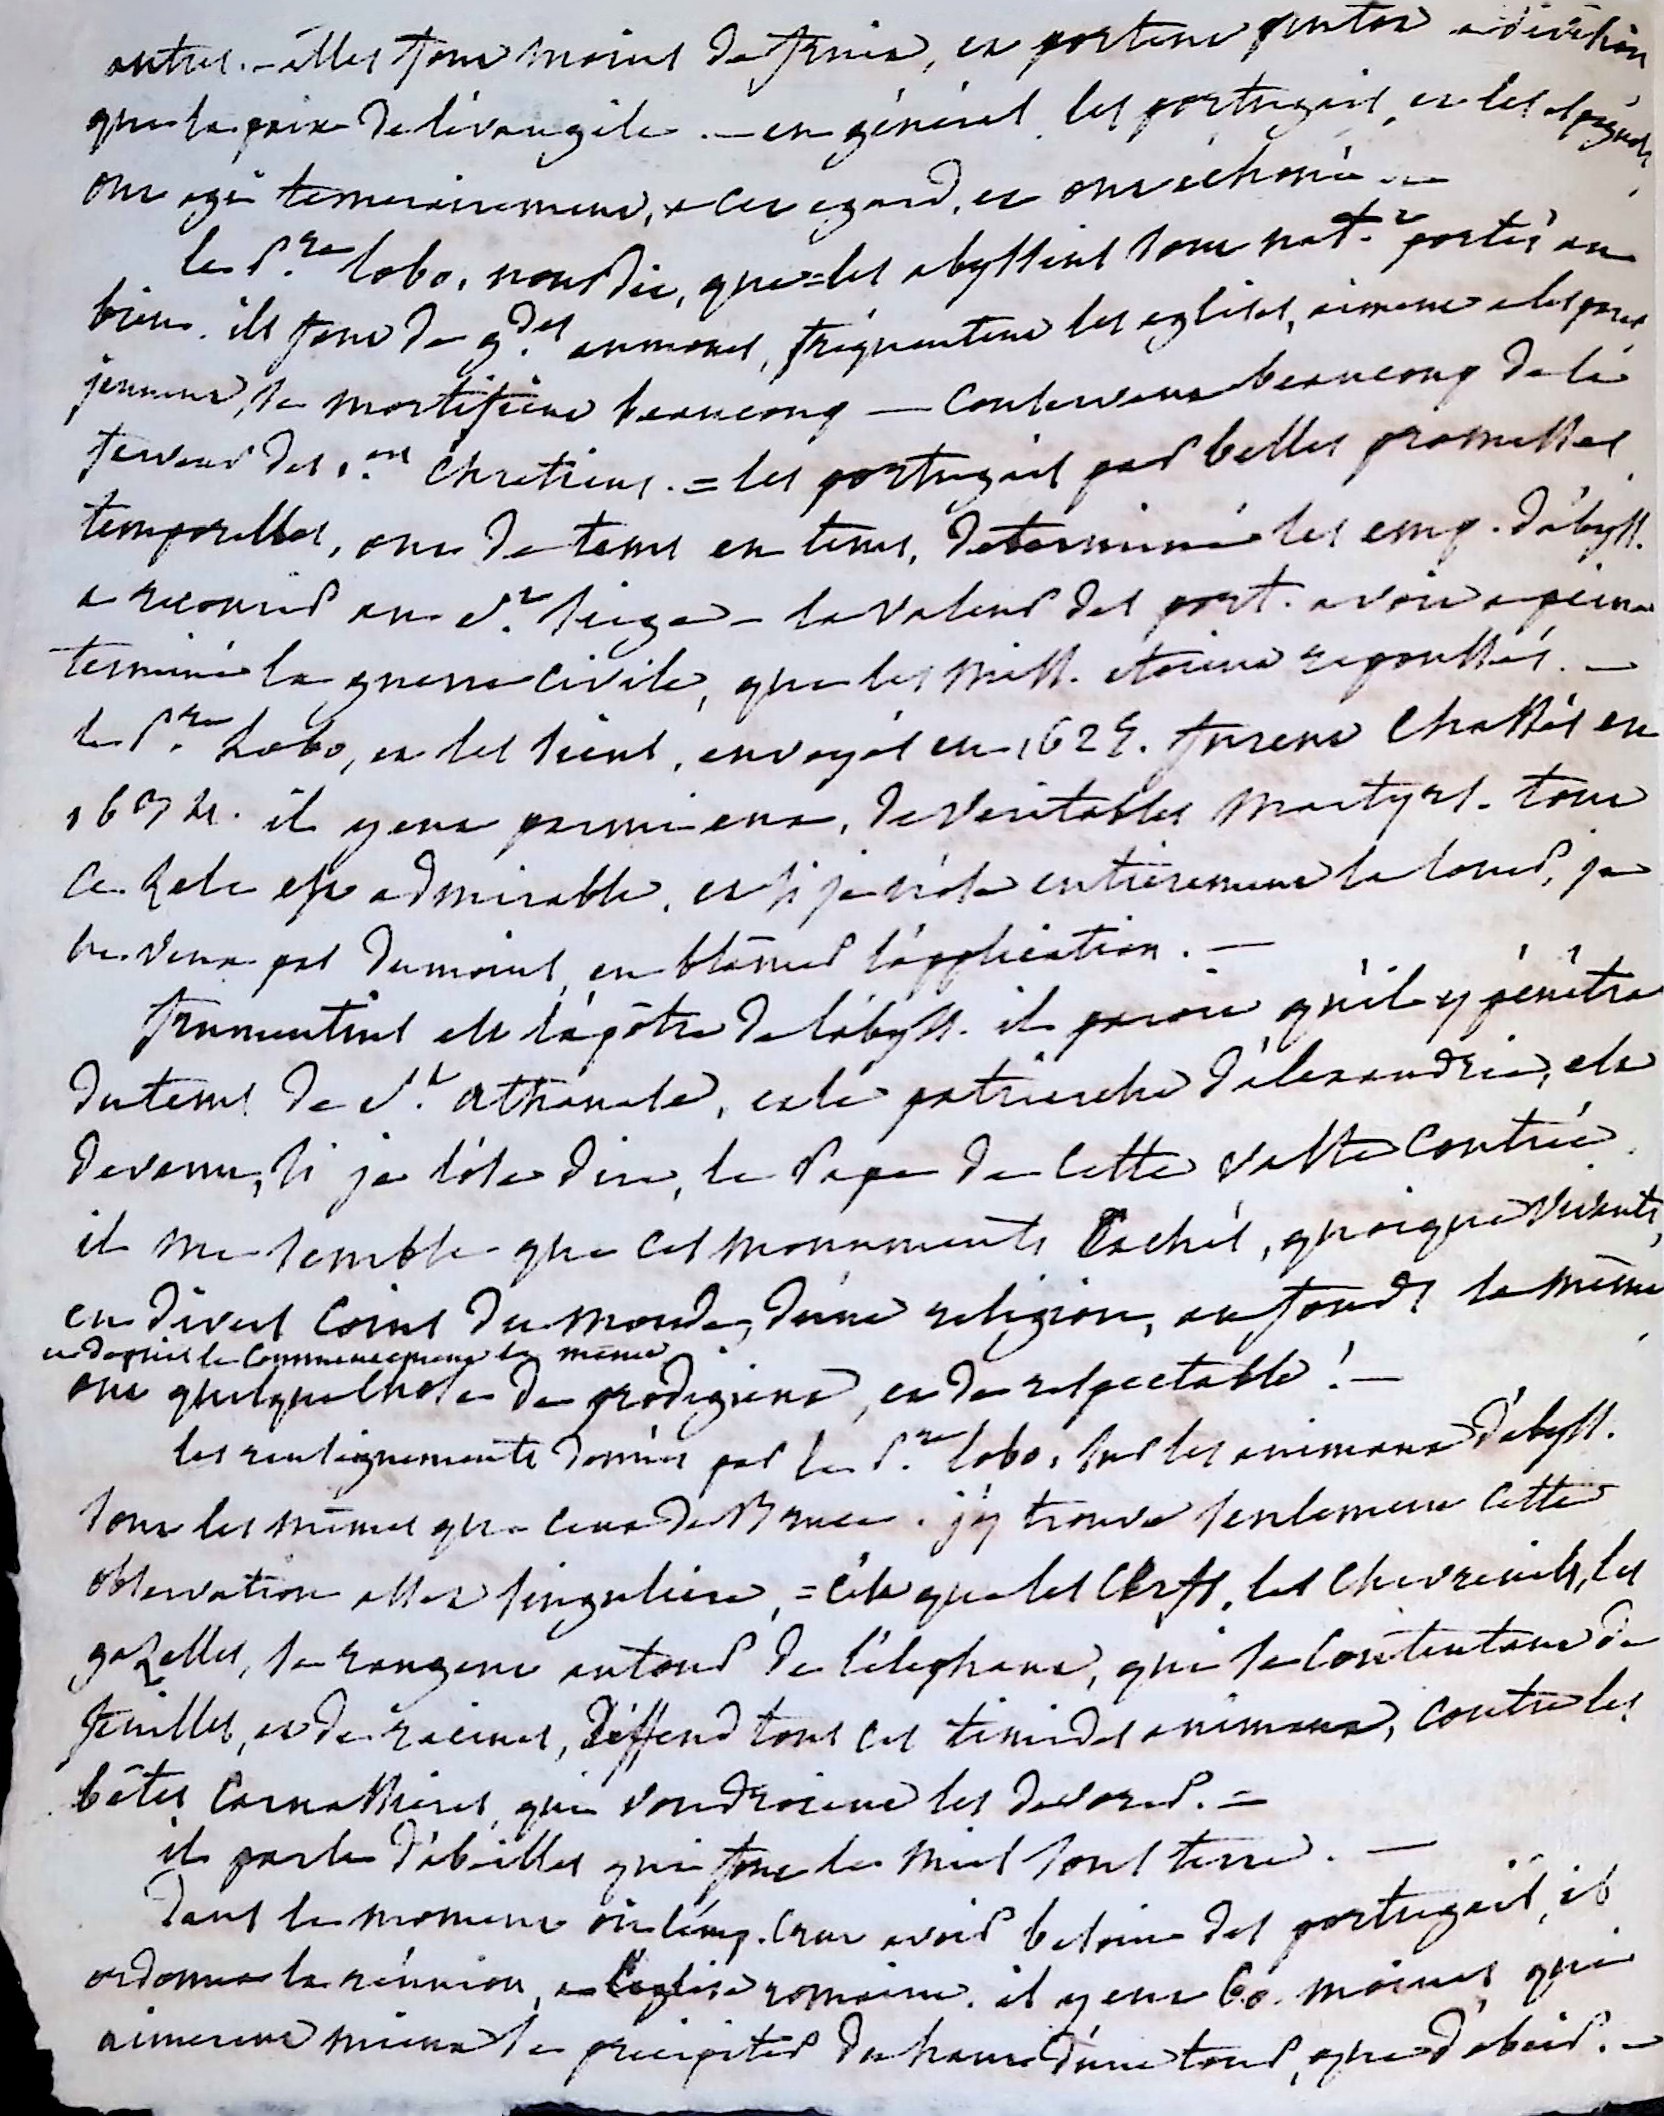 autres. - elles font moins de fruit, et portent plutot la division
que la paix de l'évangile. - en général les portugais, et les espagnols
ont agi temerairement, a cet egard, et ont échoué. -
le P.re lobo, nous dit, que = les abyssins sont nat.t portés au
bien. ils font de g.des aumones, fréquentent les eglises, aiment a les parer
jeunent, se mortifient beaucoup - conservent beaucoup de la
ferveur des 1.ers chretiens. = les portugais par belles promesses
temporelles, ont de tems en tems, determiné les emp. d'abyss.
a recourir au s.t siege - la valeur des port. avoit a peine
terminé la guerre civile, que les miss. etoient repoussés. -
le P.re Lobo, et les siens, envoyés en 1625. furent chassés en
1634. il y eut parmi eux, de veritables martyrs. tout
ce zele est admirable, et si je n'ose entierement le louer, je
ne veux pas du moins, en blâmer l'application. -
frumentius est l'apôtre de l'abyss. il paroit qu'il y pénétra
du tems de s.t athanase, et le patriarche d'alexandrie, est
devenu, si je l'ose dire, le Pape de cette vaste contrée.
il me semble que ces monuments cachés, quoique vivants,
en divers coins du monde, d'une religion, au fonds la même
et depuis le commencement la même
ont quelque chose de prodigieux, et de respectable! -
les renseignements donnés par le P.re lobo, sur les animaux d'abyss.
sont les mêmes que ceux de Bruce. j'y trouve seulement cette
observation assez singuliere, = c'est que les Cerfs, les chevreuils, les
gazelles, se rangent autour de l'élephant, qui se contentant de
feuilles, et de racines, déffend tous ces timides animaux, contre les
bêtes carnassieres, qui voudroient les devorer. =
il parle d'abeilles qui font le miel sous terre. -
Dans le moment où l'emp. crut avoir besoin des portugais, il
ordonna la réunion, a l'eglise romaine. il y eut 60. moines qui
aimerent mieux se précipiter du haut d'une tour, que d'obeir. -